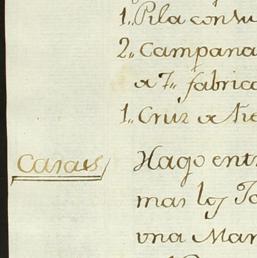 1,, Pila con su
2,, Campana
a 7,, fabrica
1,, Cruz a
Casas,
Hago ent
mas los
vna Mar